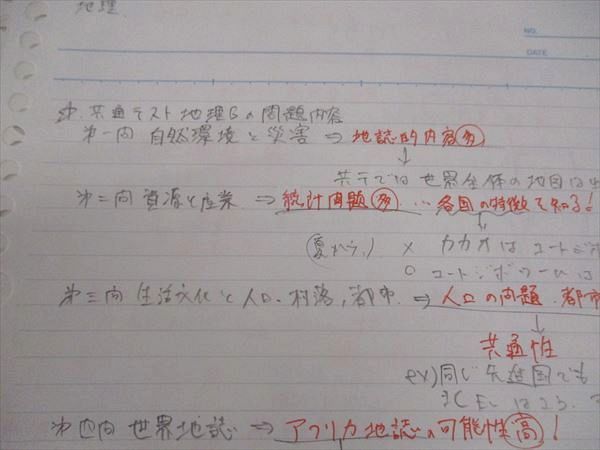 地理
NO.
DATE
☆. 共通テスト地理Bの問題内容
第一問 自然環境と災害 ⇒ 地誌的内容多
↓
共テでは世界全体の地図は
第二問 資源と産業 ⇒ 統計問題多 … 各国の特徴を知る!
× カカオはコートジボ
○ コートジボワールは
第三問 生活文化と人口、村落，都市. ⇒ 人口の問題. 都市
↓
共通性
ex)同じ先進国でも
は23.
第四問 世界地誌 ⇒ アフリカ地誌の可能性高!